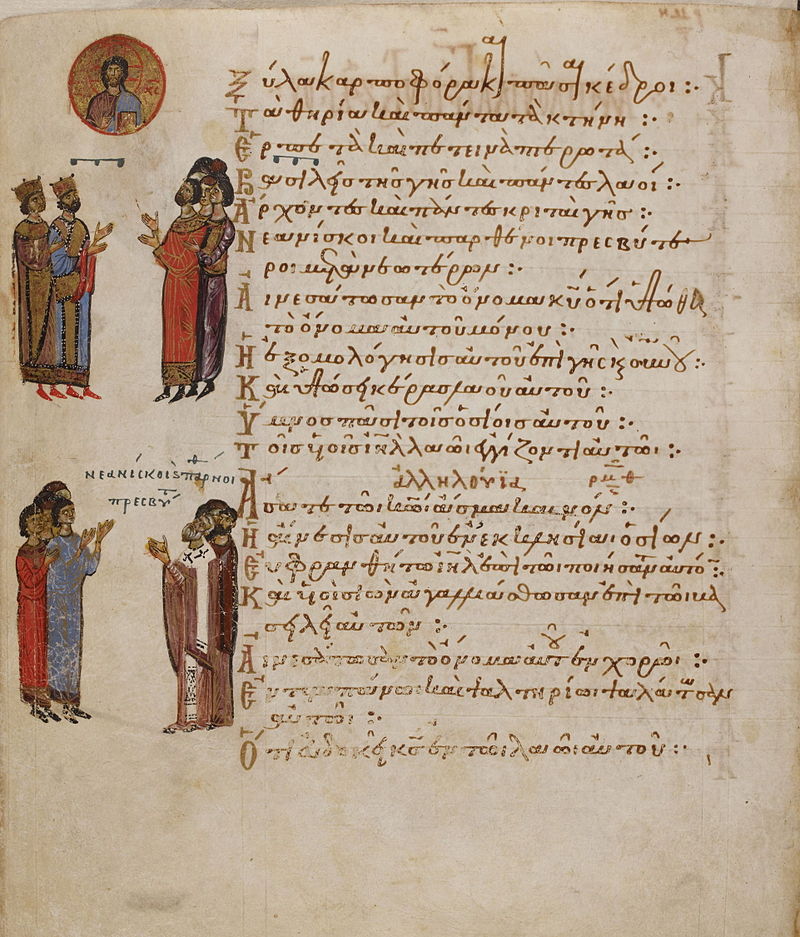 Ξύλα καρποφόρα κ(αὶ) πᾶσαι κέδροι :·
Τὰ θηρία καὶ πάντα τὰ κτήνη :·
Ἑρπετὰ καὶ πετεινὰ πτερωτά :·
Βασιλεῖς τῆς γῆς καὶ πάντες λαοί :·
Ἄρχοντες καὶ πάντες κριταὶ γῆς :·
Νεανίσκοι καὶ παρθένοι πρεσβύτε
ροι μετὰ νεωτέρων :·
Αἰνεσάτωσαν τὸ ὄνομα κ̅υ̅ ὅτι ὑψώθη
τὸ ὄνομα αὐτοῦ μόνου :·
Ἡ ἐξομολόγησις αὐτοῦ ἐπὶ γῆς κ(αὶ) οὐ̅ν̅ο̅υ̅ :·
Καὶ ὑψώσει κέρας λαοῦ αὐτοῦ :·
Ὕμνος πᾶσι τοῖς ὁσίοις αὐτοῦ :·
Τοῖς υἱοῖς ι̅η̅λ̅ λαῶι ἐγγίζοντι αὐτῶι :·
νεανίσκοι κ(αὶ) παρθνοι
πρεσβύτ
ἀλληλούϊα ρμθ
Ἄσατε τῶι κ̅ω̅ι̅ ἆσμα καινόν :·
Ἡ αἴνεσις αὐτοῦ ἐν ἐκκλησίαι ὁσίων :·
Εὐφρανθήτω ι̅η̅λ̅ ἐπὶ τῶι ποιήσαντι αὐτόν :·
Καὶ υἱοὶ σιὼν ἀγαλλιάσθωσαν ἐπὶ τῶι βα
σιλεῖ αὐτῶν :·
Αἰνεσάτωσαν τὸ ὄνομα αὐτοῦ ἐν χορῶι :·
Ἐν τυμπάνωι καὶ ψαλτηρίωι ψαλάτωσαν
αὐτῶι :·
Ὅτι εὐδοκεῖ κ̅ς̅ ἐν τῶι λαῶι αὐτοῦ :·